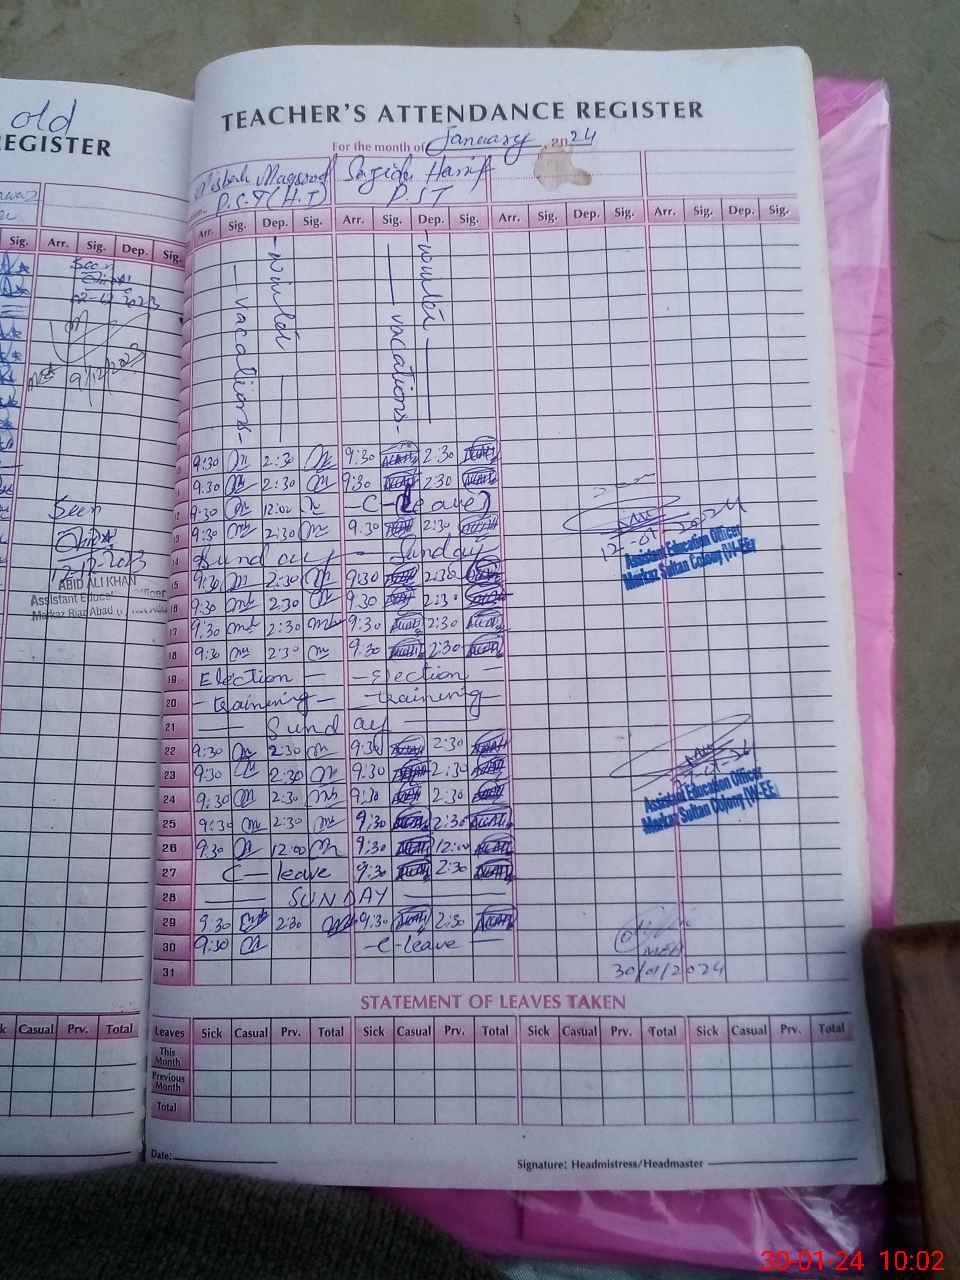 old
REGISTER
Sig. Arr. Sig. Dep. Sig.
Seen
9/12/2023
Seen
12-12-2023
ABID ALI KHAN
Assistant Officer
Casual Prv. Total
TEACHER'S ATTENDANCE REGISTER
For the month of January, 2024
Misbah Maqsood Sajida Hanif
P.S.T (H.T) P.S.T
Arr. Sig. Dep. Sig. Arr. Sig. Dep. Sig. Arr. Sig. Dep. Sig. Arr. Sig. Dep. Sig.
winter winter
vacations vacations
9:30 2:30 9:30 2:30
9:30 2:30 9:30 2:30
9:30 12:00 C-leave
9:30 2:30 9:30 2:30
14 Sunday Sunday
15 9:30 2:30 9:30 2:30
16 9:30 2:30 9:30 2:30
17 9:30 2:30 9:30 2:30
18 9:30 2:30 9:30 2:30
19 Election - - Election
20 - training - - training -
21 Sunday
22 9:30 2:30 9:30 2:30
23 9:30 2:30 9:30 2:30
24 9:30 2:30 9:30 2:30
25 9:30 2:30 9:30 2:30
26 9:30 12:00 9:30 12:00
27 C - leave 9:30 2:30
28 SUNDAY
29 9:30 2:30 9:30 2:30
30 9:30 - C-leave -
31
12-01-2024
Assistant Education Officer
Markaz Sultan Colony (W-EE)
Assistant Education Officer
Markaz Sultan Colony (W-EE)
MEA
30/01/2024
STATEMENT OF LEAVES TAKEN
Leaves Sick Casual Prv. Total Sick Casual Prv. Total Sick Casual Prv. Total Sick Casual Prv. Total
This Month
Previous Month
Total
Date:
Signature: Headmistress/Headmaster
30-01-24 10:02